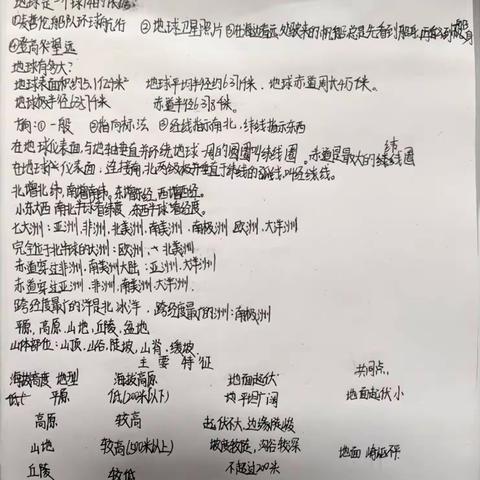 地球是一个球体的依据:
船队环球航行 ②地球卫星照片 ③在海边看远处驶来的帆船总是先看到 再看到船身
④登高望远
地球有多大?
地球表面积约5.1亿千米² 地球平均半径约6371千米、地球赤道周长4万千米。
地球极半径6357千米 赤道半径6378千米。
方向:①一般 ②指向标法 ③经线指示南北,纬线指示东西
在地球仪表面,与地轴垂直并环绕地球一周的圆圈叫纬线圈。赤道是最大的纬线圈
在地球仪表面,连接南北两极 并垂直于纬线的弧线,叫经线。
北增北纬,南增南纬。东增东经,西增西经。
小东大西 南北半球看纬度、东西半球看经度。
七大洲:亚洲、非洲、北美洲、南美洲、南极洲、欧洲、大洋洲
完全位于北半球的大洲:欧洲、北美洲
赤道穿过非洲、南美洲大陆:亚洲、大洋洲
赤道穿过亚洲、非洲、南美洲、大洋洲.
跨经度最广的洋是北冰洋. 跨经度最广的洲:南极洲
平原、高原、山地、丘陵、盆地
山体部位:山顶、山谷、陡坡、山脊、缓坡.
主要特征
海拔高度 地型 海拔高原 地面起伏 共同点
低 平原 低(200米以下) 地平坦广阔 地面起伏小
高原 较高 起伏不大,边缘陡峻
山地 较高(500米以上) 坡度较陡,沟谷较深 地面崎岖不平
丘陵 较低 不超过200米